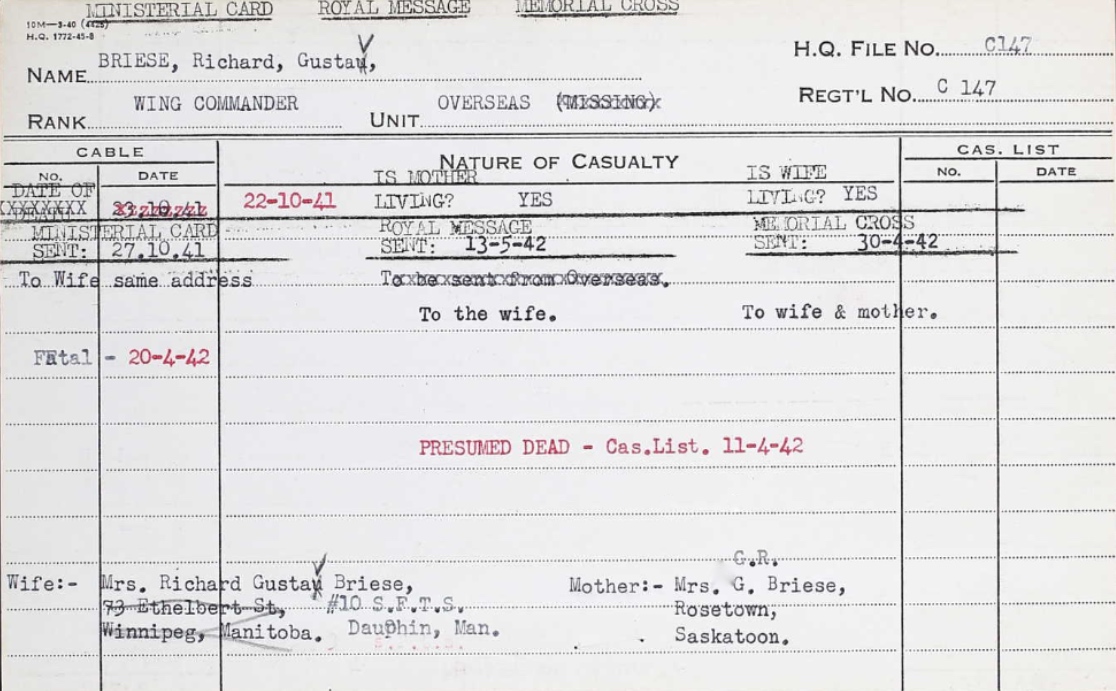 MINISTERIAL CARD ROYAL MESSAGE MEMORIAL CROSS
10M—3-40 (4425)
H.Q. 1772-45-8
H.Q. FILE NO. C147
NAME BRIESE, Richard, Gustav,
REGT'L NO. C 147
RANK WING COMMANDER UNIT OVERSEAS (MISSING)
CABLE NATURE OF CASUALTY CAS. LIST
NO. DATE IS MOTHER IS WIFE NO. DATE
DATE OF 22-10-41 LIVING? YES LIVING? YES
23.10.41
MINISTERIAL CARD ROYAL MESSAGE MEMORIAL CROSS
SENT: 27.10.41 SENT: 13-5-42 SENT: 30-4-42
To Wife same address To be sent from Overseas.
To the wife. To wife & mother.
Fatal - 20-4-42
PRESUMED DEAD - Cas.List. 11-4-42
G.R.
Wife:- Mrs. Richard Gustav Briese, Mother:- Mrs. G. Briese,
73 Ethelbert St, #10 S.F.T.S. Rosetown,
Winnipeg, Manitoba. Dauphin, Man. Saskatoon.